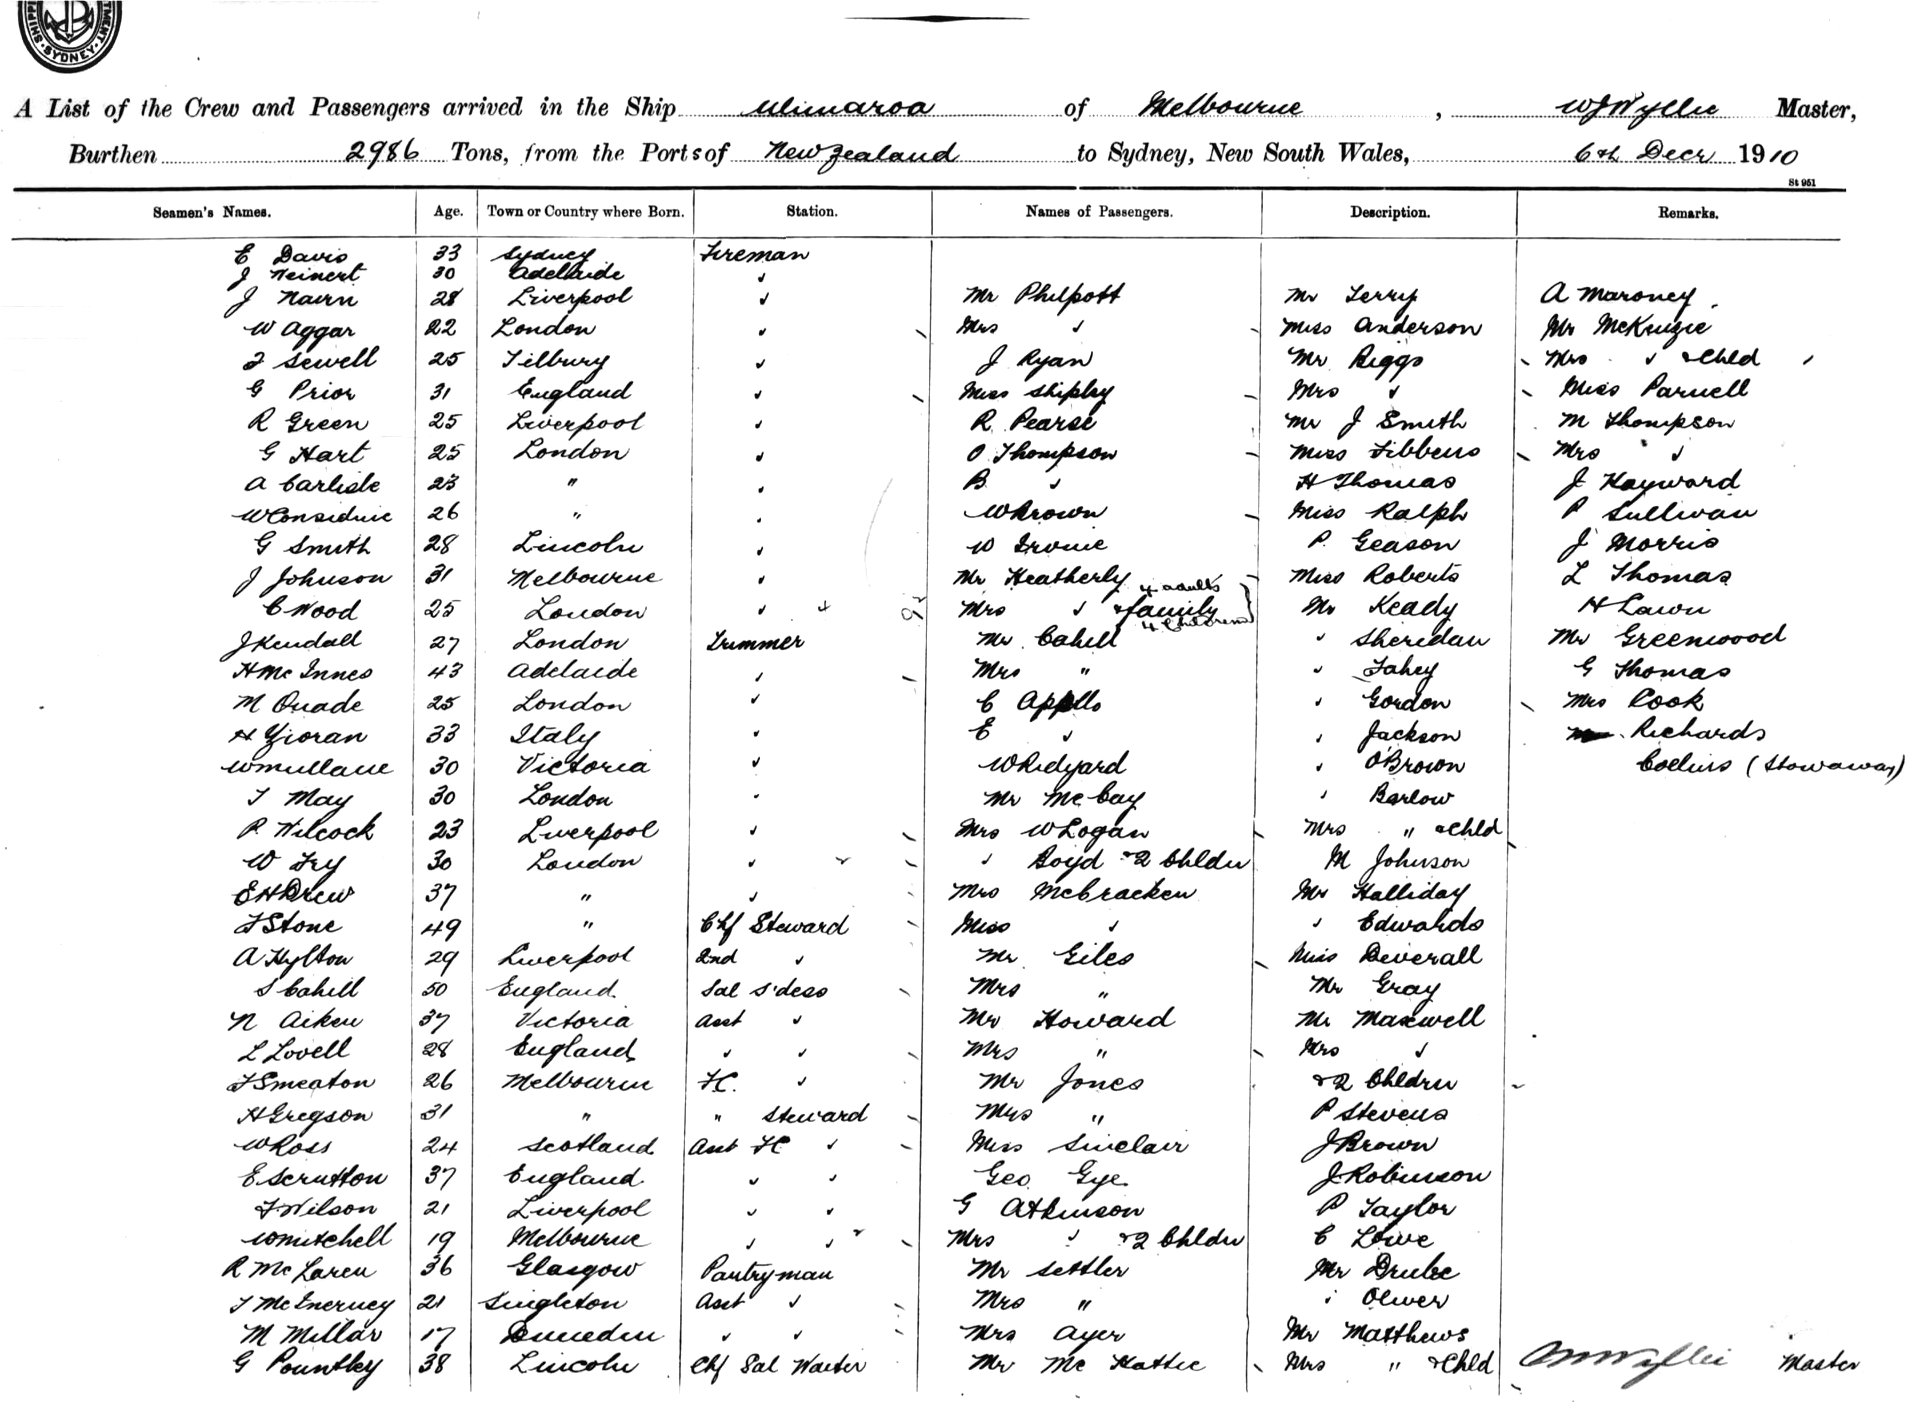 SYDNEY
A List of the Crew and Passengers arrived in the Ship Ulimaroa of Melbourne, W J Wyllie Master,
Burthen 2986 Tons, from the Ports of New Zealand to Sydney, New South Wales, 6th Decr 1910
St 951
Seamen's Names. Age. Town or Country where Born. Station. Names of Passengers. Description. Remarks.
E Davis 33 Sydney Fireman
J Weinert 30 Adelaide ✓
J Nairn 28 Liverpool ✓ Mr Philpott Mr Terry A Maroney
W Aggar 22 London ✓ Mrs ✓ Miss Anderson Mr McKenzie
F Sewell 25 Tilbury ✓ J Ryan Mr Biggs Mrs ✓ & Chld
G Prior 31 England ✓ Miss Shipley Mrs ✓ Miss Parnell
R Green 25 Liverpool ✓ R Pearse Mr J Smith M Thompson
G Hart 25 London ✓ O Thompson Miss Fibbens Mrs ✓
A Carlisle 23 " ✓ B ✓ H Thomas J Hayward
W Considine 26 " ✓ W Brown Miss Ralph P Sullivan
G Smith 28 Lincoln ✓ W Irvine P Geason J Morris
J Johnson 31 Melbourne ✓ Mr Heatherly 4 adults Miss Roberts L Thomas
C Wood 25 London ✓ Mrs ✓ & family 4 Children Mr Keady H Lawn
J Kendall 27 London Trimmer Mr Cahill ✓ Sheridan Mr Greenwood
H McInnes 43 Adelaide ✓ Mrs " ✓ Fahey G Thomas
M Quade 25 London ✓ C Appllo ✓ Gordon Mrs Cook
H Zioran 33 Italy ✓ E ✓ ✓ Jackson Richards
W Mullane 30 Victoria ✓ W Ridyard ✓ O'Brown Collins (Stowaway)
T May 30 London ✓ Mr McCay ✓ Barlow
P Wilcock 23 Liverpool ✓ Mrs W Logan Mrs " & Chld
W Fry 30 London ✓ ✓ Boyd & 2 Chldn M Johnson
E H Drew 37 " ✓ Mrs McCracken Mr Halliday
F Stone 49 " Chf Steward Miss ✓ ✓ Edwards
A Hylton 29 Liverpool 2nd ✓ Mr Giles Miss Deverall
S Cahill 50 England Sal S'dess Mrs " Mr Gray
N Aiken 37 Victoria Asst ✓ Mr Howard Mr Maxwell
L Lovell 28 England ✓ ✓ Mrs " Mrs ✓
F Smeaton 26 Melbourne FC. ✓ Mr Jones & 2 Chldrn
H Gregson 31 " " Steward Mrs " P Stevens
W Ross 24 Scotland Asst FC ✓ Miss Sinclair J Brown
E Scrutton 37 England ✓ ✓ Geo Gye J Robinson
F Wilson 21 Liverpool ✓ ✓ G Atkinson P Taylor
W Mitchell 19 Melbourne ✓ ✓ Mrs ✓ & 2 Chldn C Lowe
R McLaren 36 Glasgow Pantryman Mr Settler Mr Drube
T McEnerney 21 Singleton Asst ✓ Mrs " ✓ Oliver
M Millar 17 Dunedin ✓ ✓ Mrs Ayer Mr Matthews
G Pountley 38 Lincoln Chf Sal Waiter Mr McHattie Mrs " & Chld W J Wyllie Master